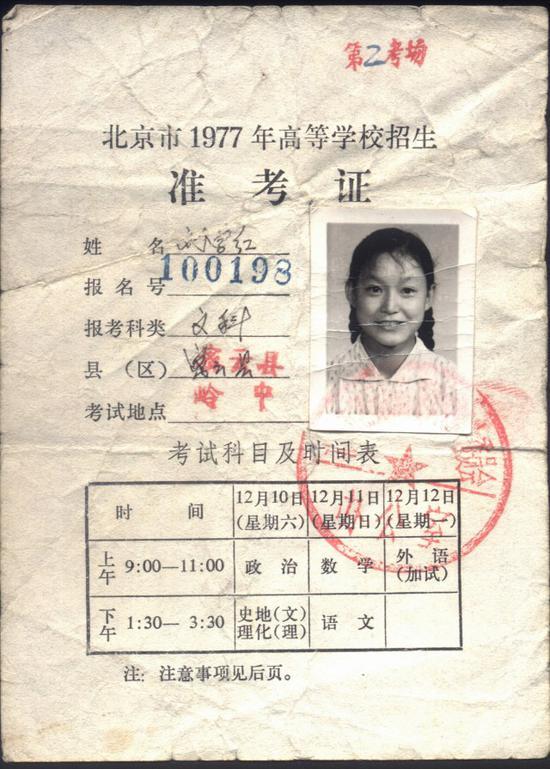 第2考场
北京市1977年高等学校招生
准考证
姓 名 刘学红
报名号 100198
报考科类 文科
县（区） 密云县
考试地点 岭中
考试科目及时间表
时 间 12月10日(星期六) 12月11日(星期日) 12月12日(星期一)
上午 9:00—11:00 政治 数学 外语(加试)
下午 1:30—3:30 史地(文)理化(理) 语文
注：注意事项见后页。